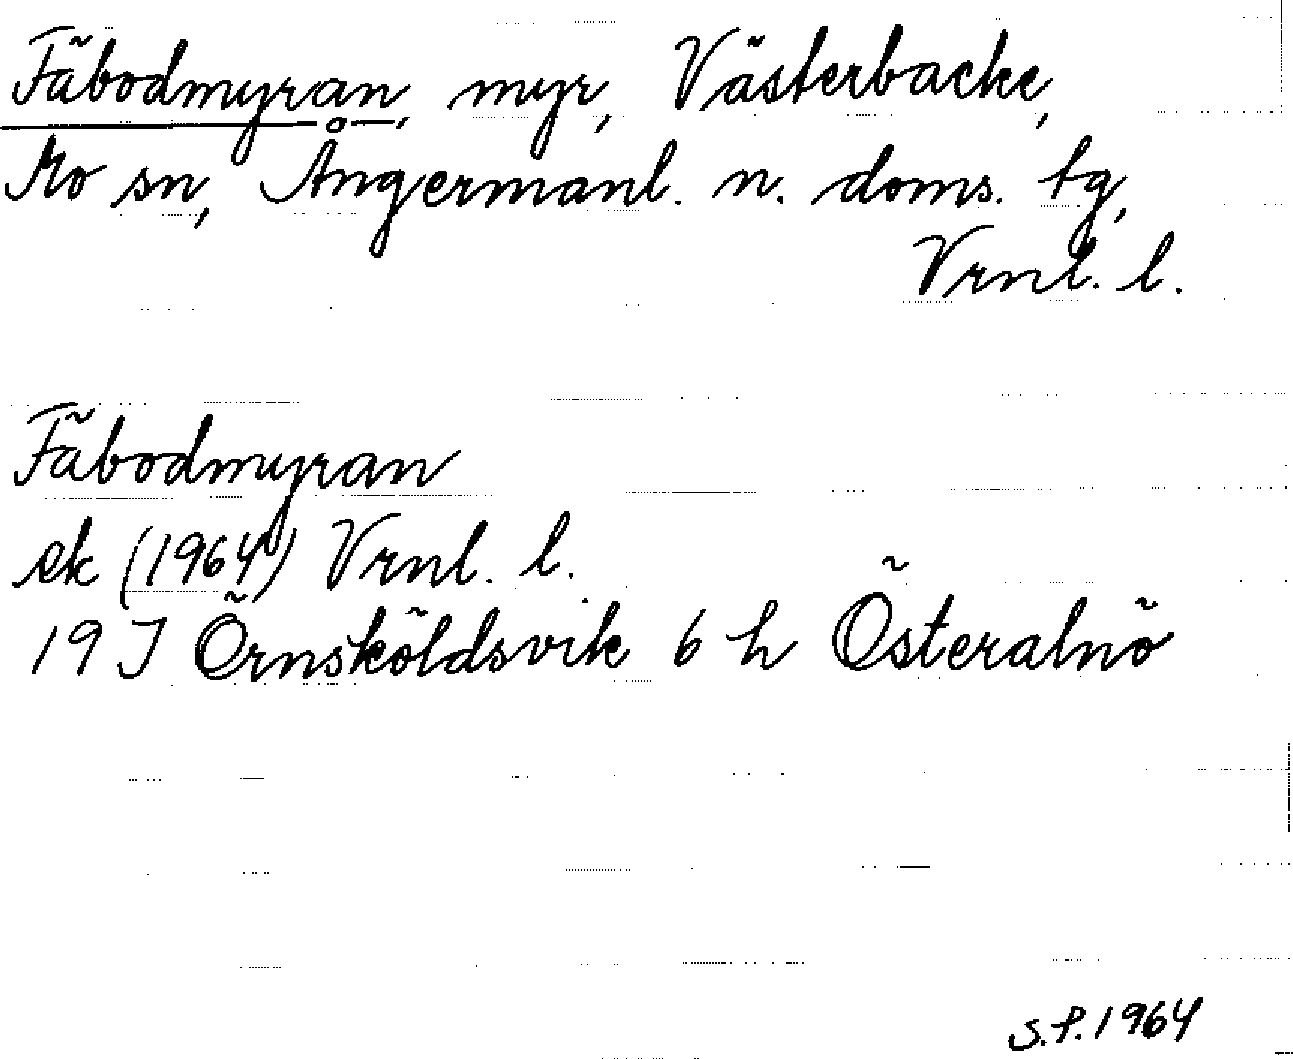 Fäbodmyran, myr, Västerbacke,
Mo sn, Ångermanl. n. doms. tg,
Vrnl. l.
Fäbodmyran
ek (1964) Vrnl. l.
19 J Örnsköldsvik 6 h Österalnö
S.P. 1964